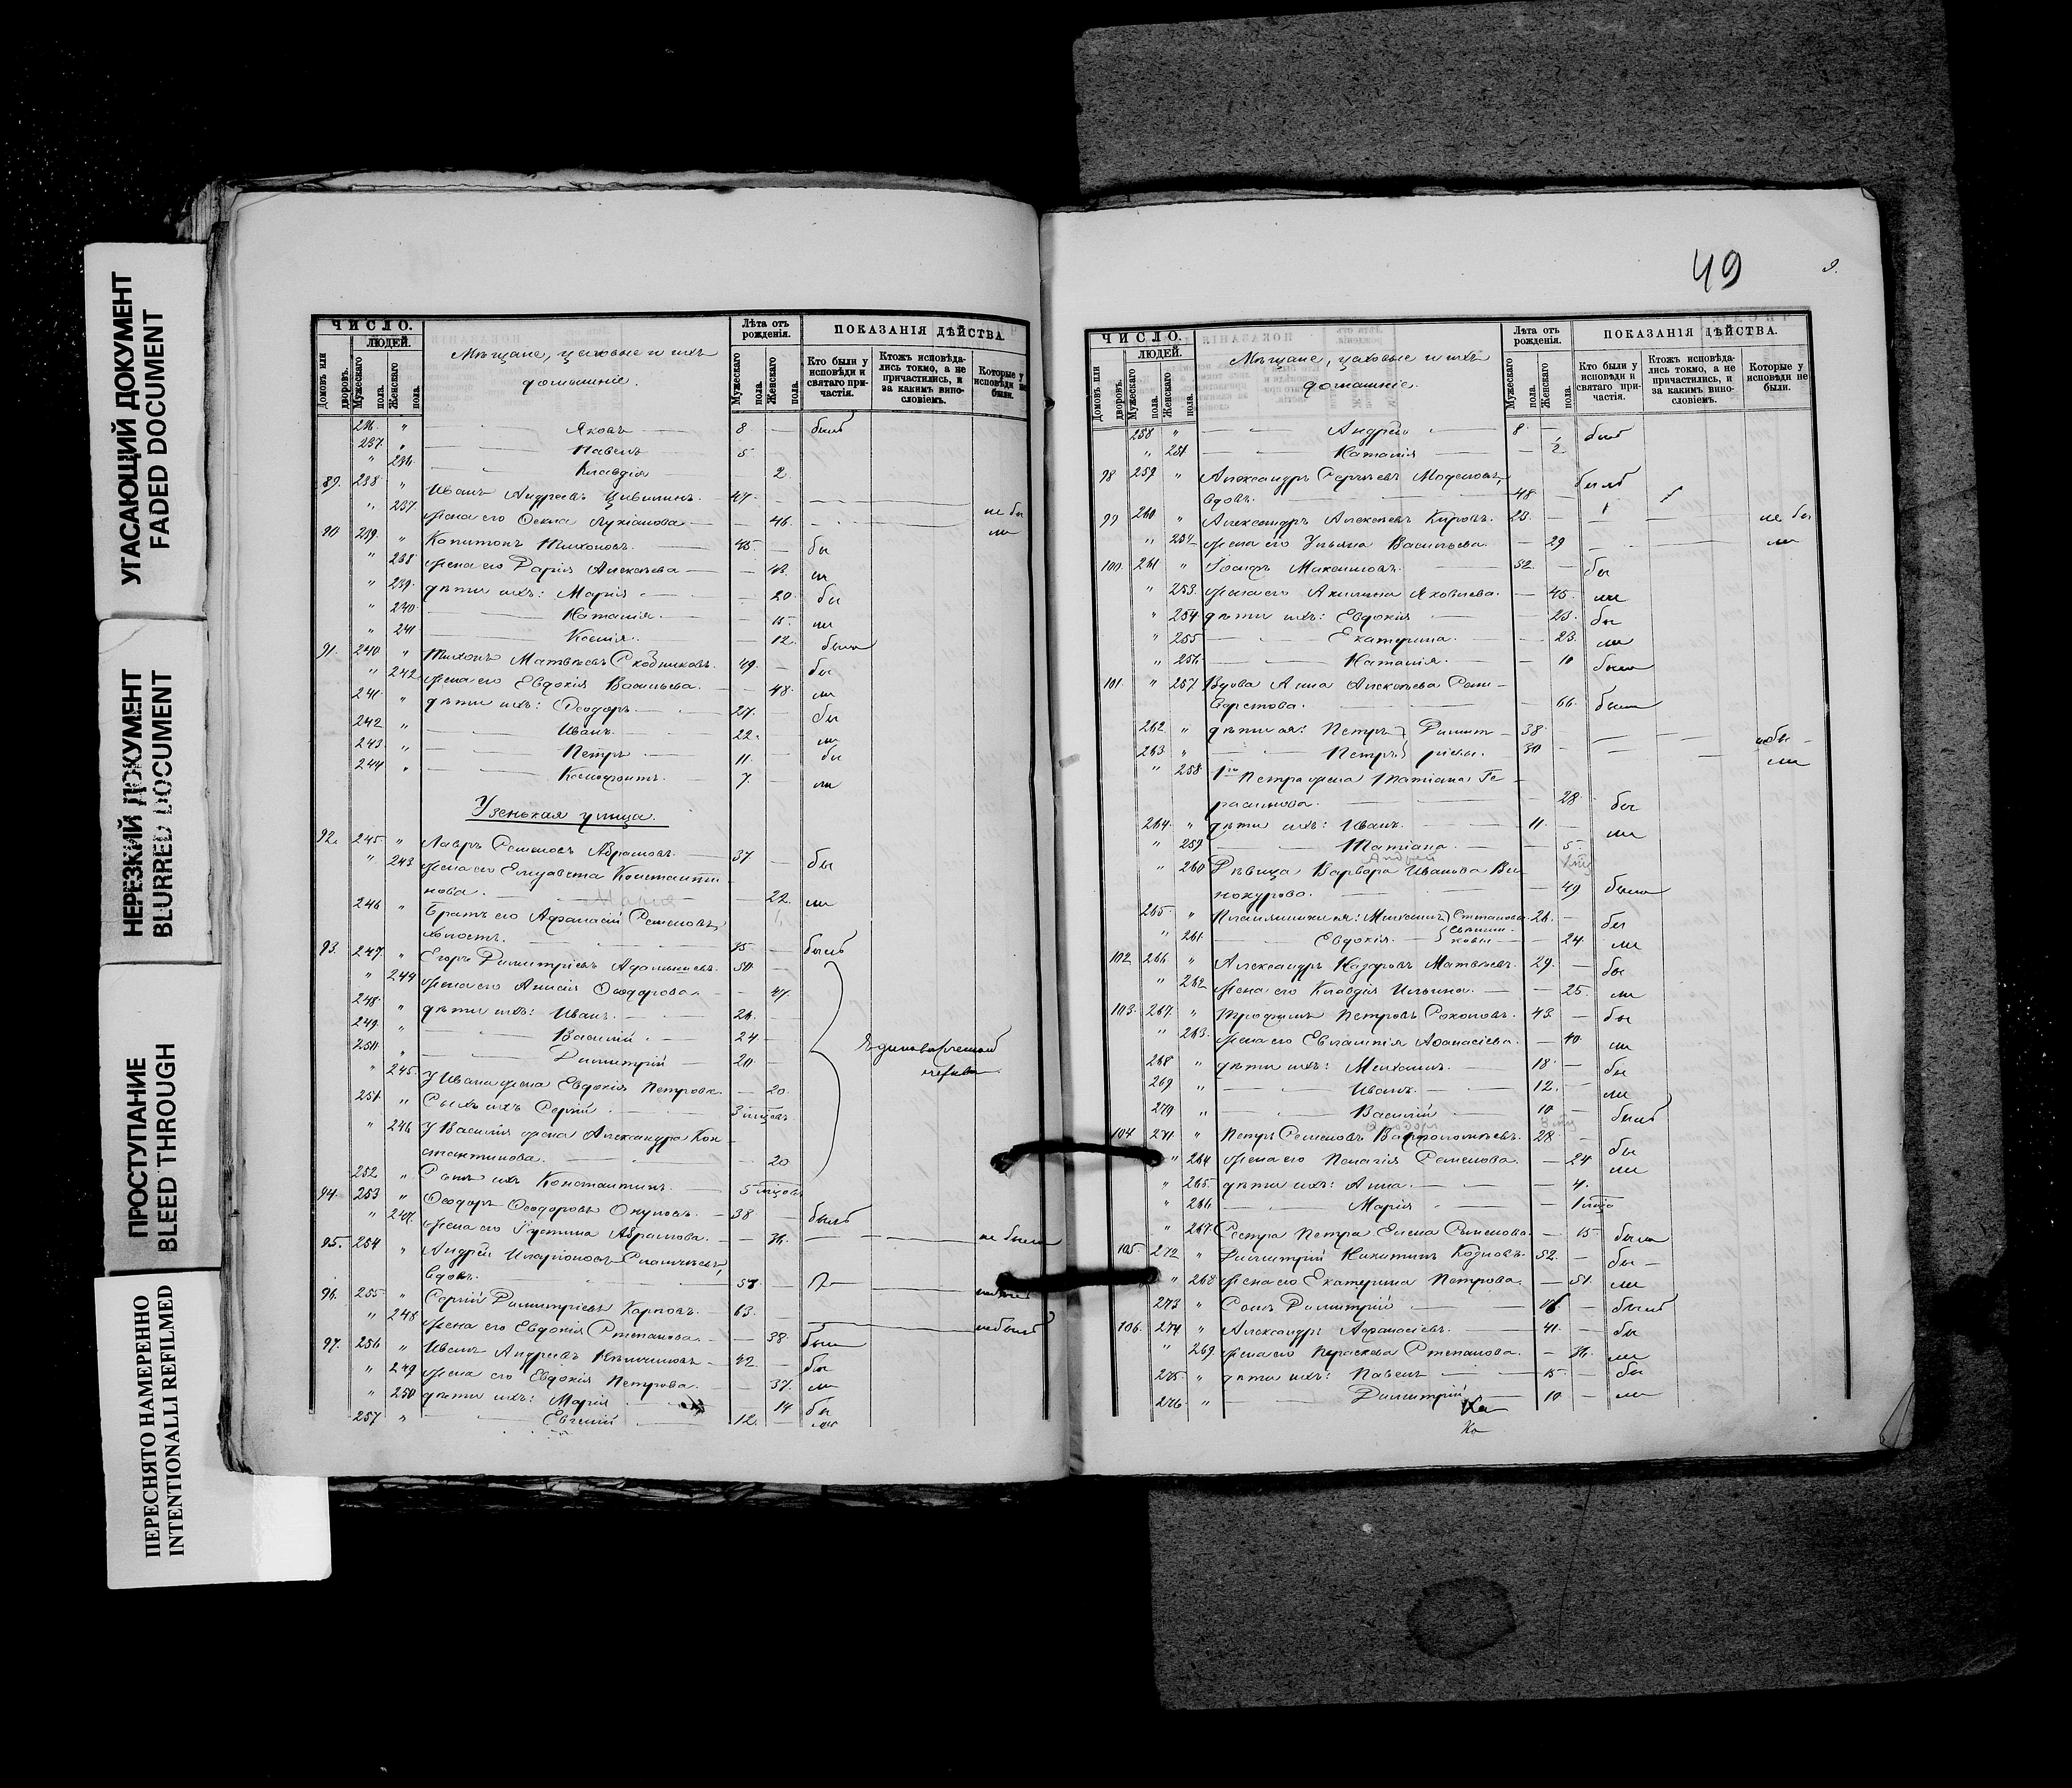 УГАСАЮЩИЙ ДОКУМЕНТ
FADED DOCUMENT
НЕРЕЗКИЙ ДОКУМЕНТ
BLURRED DOCUMENT
ПРОСТУПАНИЕ
BLEED THROUGH
ПЕРЕСНЯТО НАМЕРЕННО
INTENTIONALLI REFILMED
ЧИСЛО.
ЛЮДЕЙ.
Домовъ или дворовъ.
Мужескаго пола.
Женскаго пола.
Мѣщане, цеховые и ихъ
домашніе.
Лѣта отъ рожденія.
Мужескаго пола.
Женскаго пола.
ПОКАЗАНІЯ ДѢЙСТВА.
Кто были у исповѣди и святаго причастія.
Ктожъ исповѣдались токмо, а не причастились, и за какимъ винословіемъ.
Которые у исповѣди не были.
236 " Яковъ 8 — былъ
237 " Павелъ 5 —
" 236 Клавдія 2
89. 238 " Иванъ Андреевъ 47 —
" 237 жена его Лукіанова — 46 — не бы
90 239 " Капитонъ Тихоновъ. 45 — бы
" 238 жена его Дарія Алексѣева — 43. ли
" 239 дѣти ихъ: Марія — 20 бы
" 240 Наталія. — 15. ли
" 241 Ксенія. — 12. была
91. 240 " Тихонъ Матвѣевъ 49. — бы
" 242 жена его Евдокія Васильева. — 48. ли
241 " дѣти ихъ: Ѳеодоръ 27. бы
242 " Иванъ 22. ли
243 " Петръ 11. бы
244 " Ксенофонтъ. 7. ли
Узенькая улица.
92. 245 " Лавръ Семеновъ Абрамовъ. 37 — бы
" 243 жена его Елизавета Константи-
нова. — 22. ли
Марія
246 " Братъ его Афанасій Семеновъ,
холостъ. 35 — былъ
93. 247 " Егоръ Димитріевъ 50 —
" 244 жена его Анисія Ѳеодорова — 47.
248 " дѣти ихъ: Иванъ. 26. —
249 " Василій 24 —
250 " Димитрій 20 —
Единовѣрческой
" 245 У Ивана жена Евдокія Петрова. — 20.
251 " Сынъ ихъ Сергій 3 мѣсяц.
" 246 У Василія жена Александра Кон-
стантинова. — 20
252 " Сынъ ихъ Константинъ. 5 мѣсяц.
94. 253 " Ѳеодоръ Ѳеодоровъ Окуловъ. 38 — былъ
" 247 жена его Устина Абрамова. — 36. не была
95. 254 " Андрей Иларіоновъ
вдовъ. 57 —
96. 255 " Сергій Димитріевъ Карповъ. 63. —
" 248 жена его Евдокія Степанова. — 38. была
97. 256 " Иванъ Андреевъ 42. — бы
" 249 жена его Евдокія Петрова. — 37. ли
" 250 дѣти ихъ: Марія — 14 бы
257 " Евгеній 12. ли
49
9.
ЧИСЛО.
ЛЮДЕЙ.
Домовъ или дворовъ.
Мужескаго пола.
Женскаго пола.
Мѣщане, цеховые и ихъ
домашніе.
Лѣта отъ рожденія.
Мужескаго пола.
Женскаго пола.
ПОКАЗАНІЯ ДѢЙСТВА.
Кто были у исповѣди и святаго причастія.
Ктожъ исповѣдались токмо, а не причастились, и за какимъ винословіемъ.
Которые у исповѣди не были.
258 " Андрей 8 былъ
" 251 Наталія — 2
98 259 " Александръ Сергѣевъ
вдовъ. 48 — былъ
99 260 " Александръ Алексѣевъ 23. — не бы
" 252 жена его Ульяна Васильева. — 29 ли
100. 261 " Іосифъ Максимовъ. 52. — бы
" 253. жена его Акилина Яковлева. — 45. ли
" 254 дѣти ихъ: Евдокія — 25. бы
" 255 Екатерина. — 23. ли
" 256 Наталія. — 10 была
101. " 257 Вдова Анна Алексѣева
66. была
262 " дѣти ея: Петръ Димит- 38.
263 " Петръ ріевы. 30
" 258 1го Петра жена Татіана Ге-
расимова. — 28 бы
264 " дѣти ихъ: Иванъ. 11. — ли
" 259 Татіана. — 5.
Андрей
" 260 Дѣвица Варвара Иванова Ви-
нокурова. — 49 была
265. " Племянники ея: Михаилъ Степанова 26. — бы
" 261 Евдокія. — 24 ли
102. 266 " Александръ Назаровъ Матвѣевъ. 29. — бы
" 262 жена его Клавдія Ильина. — 25. ли
103. 267. " Трофимъ Петровъ 43. — бы
" 263. жена его Евлампія Аѳанасіева. — 40. ли
268 " дѣти ихъ: Михаилъ. 18. — бы
269 " Иванъ 12. — ли
270 " Василій 10 — былъ
104 271. " Петръ Семеновъ Варѳоломеевъ. 28. — бы
" 264 жена его Пелагія Семенова. — 24 ли
" 265. дѣти ихъ: Анна. — 4.
" 266 Марія
" 267 Сестра Петра Елена Семенова. — 15. была
105. 272. " Димитрій Никитинъ Козловъ. 52. — бы
" 268 жена его Екатерина Петрова. — 51. ли
273 " Сынъ Димитрій 16 — былъ
106. 274 " Александръ Афанасіевъ. 41. — бы
" 269 жена его Параскева Степанова. — 36. ли
275 " дѣти ихъ: Павелъ 15 — бы
276 " Димитрій 10 — ли